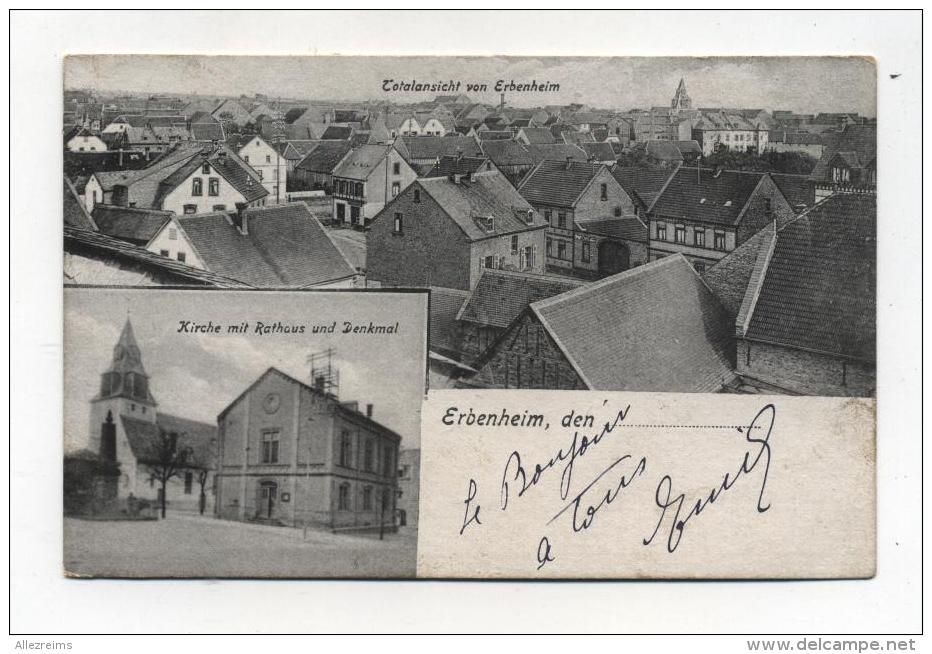 Totalansicht von Erbenheim
Kirche mit Rathaus und Denkmal
Erbenheim, den
Le Bonjour
a tous
Emile
Allezreims
www.delcampe.net